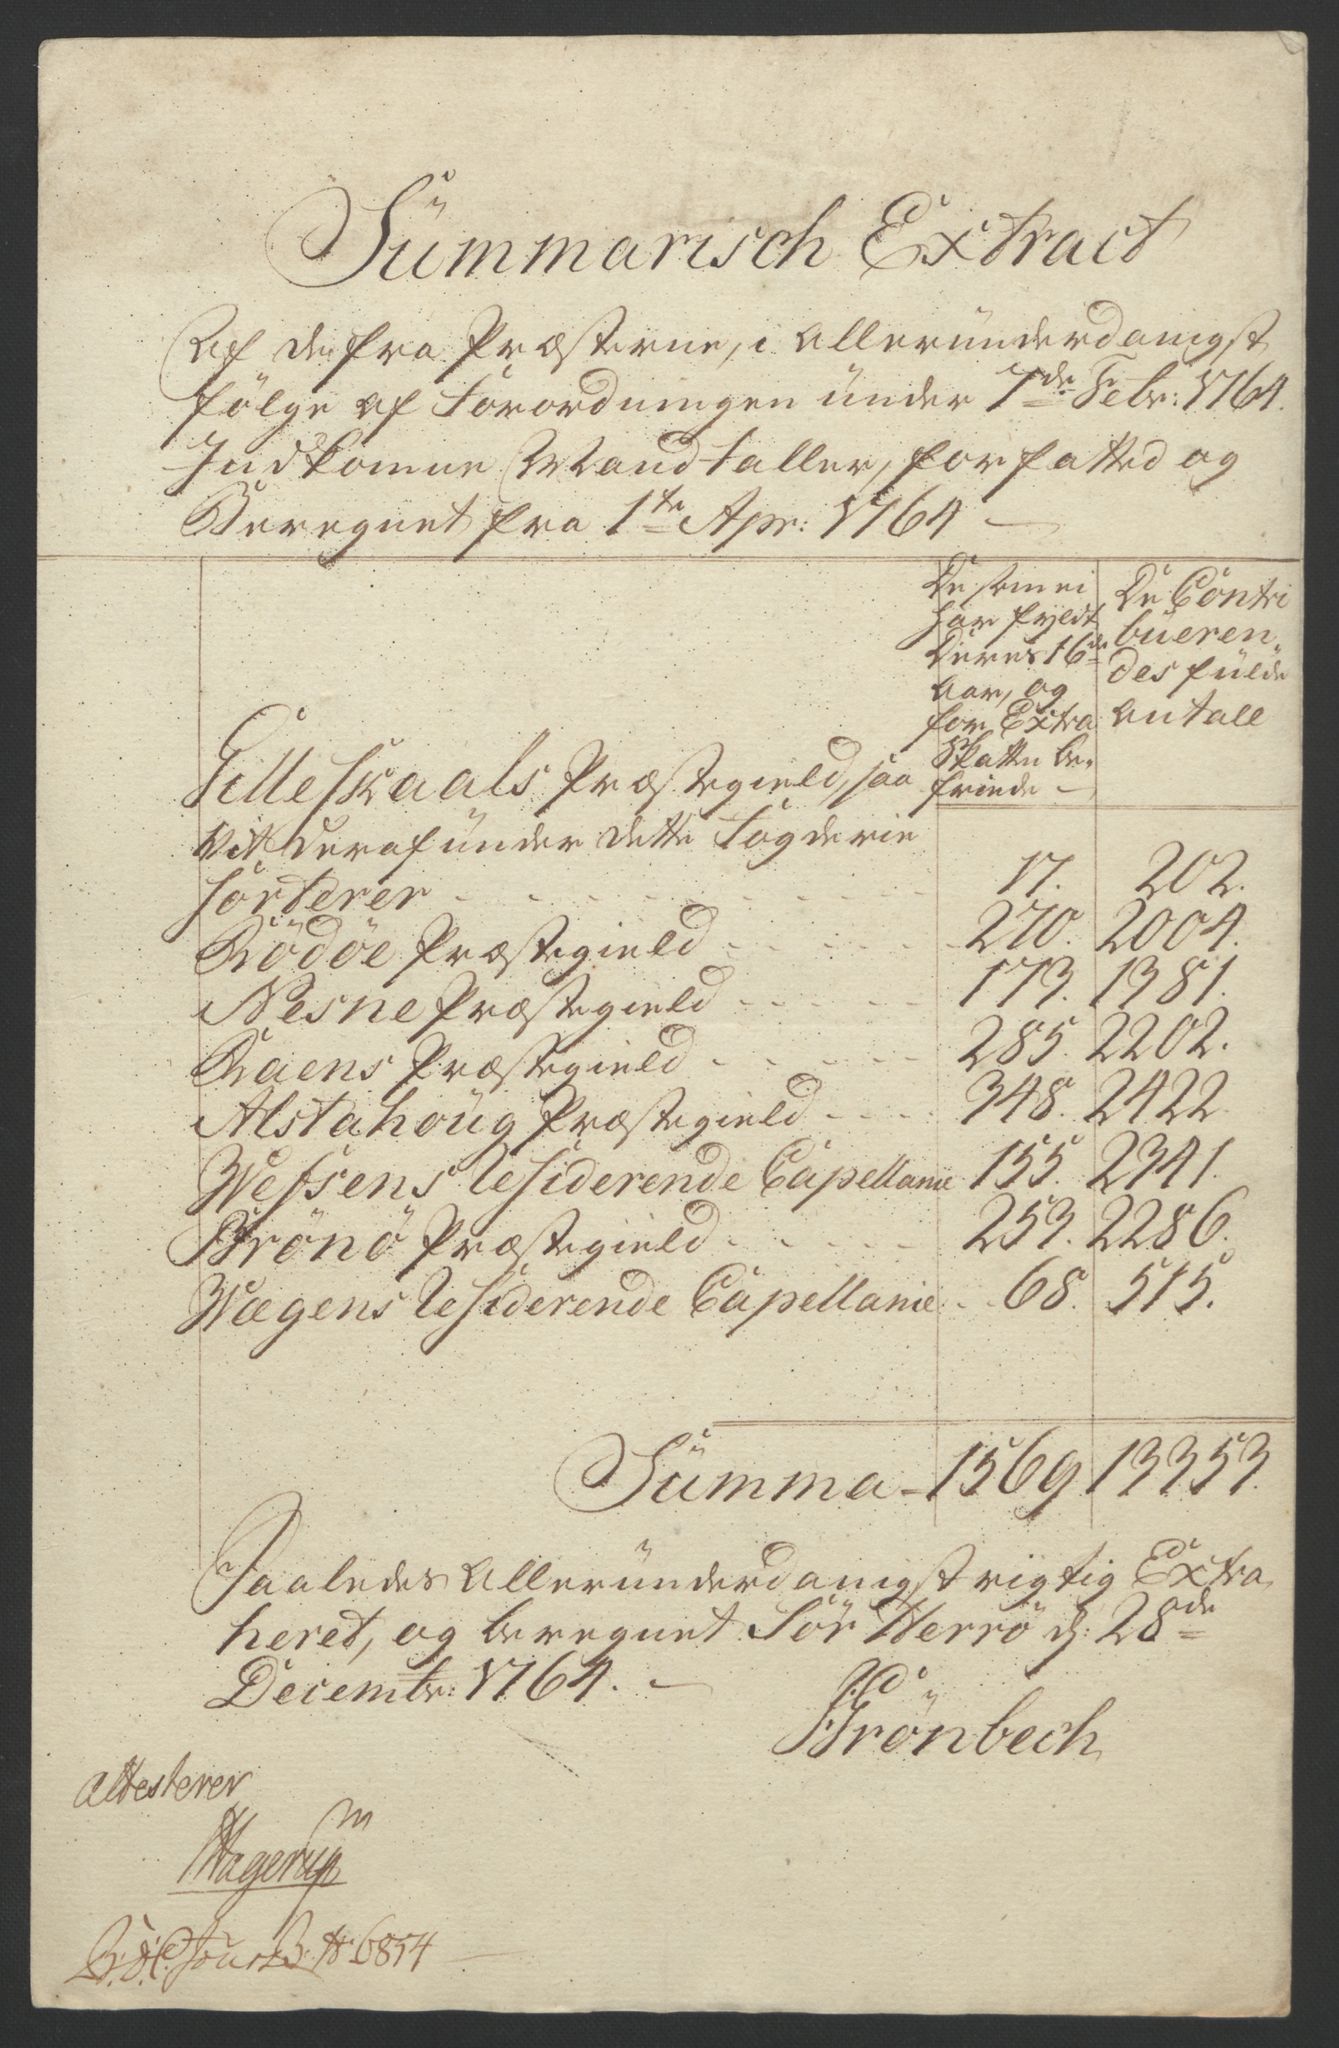 Summarisch Extract
Af de fra Præsterne, i allerunderdanigst
følge af Forordningen under 7de Febr: 1764.
Indkomne Mandtaller, forfatted og
Beregnet fra 1te Apr: 1764 —
De som ei
har fyldt
deres 16de
Aar, og
for Extra
Skatten be-
friede —
De Contri
bueren-
des fulde
antall
Gilleskaals Præstegield, saa
vit deraf under dette Fogderie
sorterer - - - 17. 202.
Rödöe Præstegield - - - 270. 2004.
Nesne Præstegield - - - 173. 1381.
Raens Præstegield - - - 285. 2202.
Alstahoug Præstegield - - - 348. 2422
Wefsens Residerende Capellanie 155. 2341.
Brönö Præstegield - - - 253. 2286.
Wægens Residerende Capellanie - 68. 515.
Summa - 1569 13353.
Saaledes allerunderdanigst rigtig Extra
heret, og beregnet Sör Herrö d: 28de
Decembr: 1764. —
Brönbech
Attesterer
Hagerup
No 6854